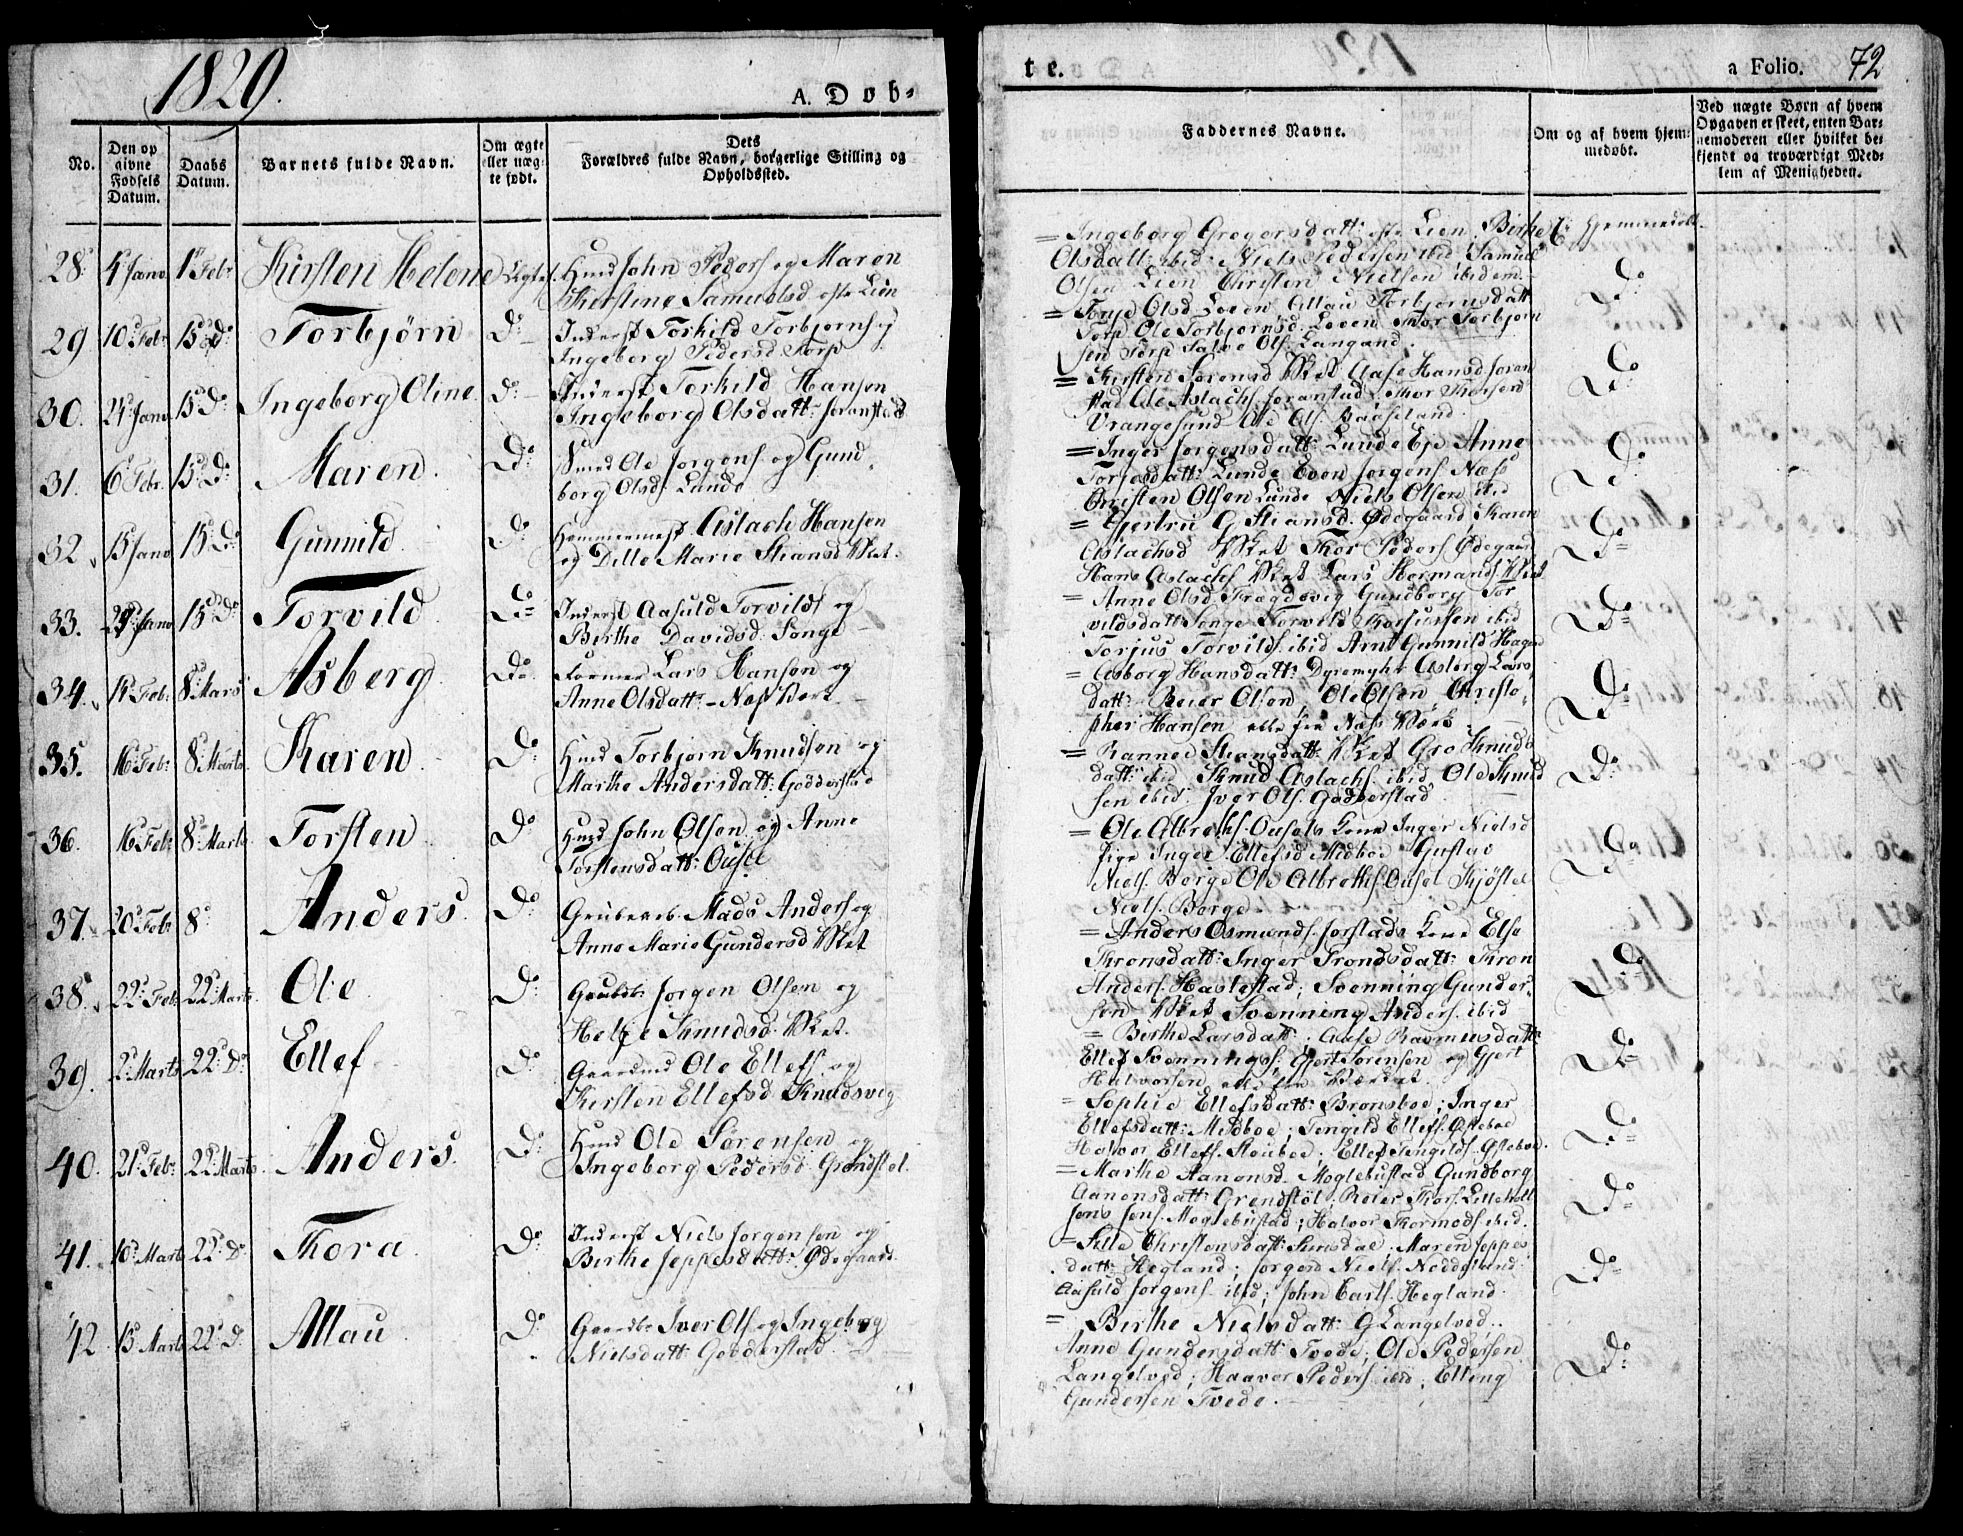 1829.
A. Døb=
No.
Den op
givne
Fødsels
Datum.
Daabs
Datum.
Barnets fulde Navn.
Om ægte
eller uæg-
te født.
Dets
Forældres fulde Navn, borgerlige Stilling og
Opholdssted.
28 4 Janv 1 Febr Kirsten Helene Ægte Huusd John Peders og Maren
Kirstine Samuelsd. Øste Lien
29 10 Febr 15 Do Torbjørn Do Inderst Torkild Torbjørns og
Ingeborg Pedersd. Torp
30. 24 Janv 15 Do Ingeborg Oline Do Inderst Torkild Hansen
Ingeborg Olsdatt:
31. 6 Febr. 15 Do Maren Do Smed Ole Jørgens. og Gund
borg Olsd. Lunde
32 15 Janv 15 Do Gunnild Do Hammermest Aslach Hansen
og Dille Marie Stiansd. Wket.
33. Janv 15 Do Torvild Do Inderst Aasuld Torvilds og
Birthe Davidsd. Songe
34. 14 Febr 8 Mars Asberg Do Former Lars Hansen og
Anne Olsdatt: Næs Værk
35. 16 Febr 8 Marts Karen Do Huusd Torbjørn Knudsen og
Marthe Andersdatt: Godderstad
36. 16 Febr 8 Marts Torsten Do Huusd John Olsen og Anne
Torstensdatt:
37. 20 Febr 8 Anders Do Grubearb. Mads Anders og
Anne Marie Gundersd. Wket
38. 22 Febr 22 Marts Ole Do Jørgen Olsen og
Helge Knudsd. Wket.
39. 2 Marts 22 Do Ellef Do Ole Ellefs. og
Kirsten Ellefsd. Knudsvig
40. 21 Febr 22 Marts Anders Do Huusd Ole Sørensen og
Ingeborg Pedersd. Grendstøl.
41. 10 Marts 22 Do Thora Do Inderst Niels Jørgensen og
Birthe Jeppesdatt: Ødegaard
42 15 Marts 22 D Allau Do Gaardbr. Iver Ols. og Ingeborg
Nielsdatt: Godderstad
te.
a Folio. 72
Faddernes Navne.
Om og af hvem hjem-
medøbt.
Ved uægte Børn af hvem
Opgaven er skeet, enten Bar-
nemoderen eller hvilket be-
kjendt og troværdigt Med-
lem af Menigheden.
= Ingeborg Gregersdatt: Øste Lien, Birthe Ej Hjemmedøbt
Olsdatt: ibid. Niels Pedersen ibid Samuel
Olsen Lien Christen Nielsen ibidem
= Olsd. Loven Allau Torbjørnsdatt
Torp Ole Torbjørns. Loven Thor Torbjørn
sen Torp Salve Ols. Langand. Do
= Kirsten Sørensd. Wket Aase Hansd.
stad Ole Aslachs. Thor Thorsen
Vrangesund Ole Ols. Baaseland. Do
= Inger Jørgensdatt: Lunde Eje Anne
Torjesdatt: Lunde Even Jørgens. Næss
Christen Olsen Lunde Niels Olsen ibid Do
= Gjertru G. Stiansd. Ødegaard, Karen
Aslachsd Wket Thor Peders. Ødegaard
Hans Aslachs. Wket Lars Hermands. Wket Do
= Anne Olsd. Trægdevig Gundborg Tor
vildsdatt Songe Torvild ibid
Torjus Torvilds. ibid Arnt Gunnild Do
= Asborg Hansdatt: Dyremyhr Asberg Lars
datt: Reier Olsen, Ole Olsen, Christo-
pher Hansen alle fra Næs Værk Do
= Rannei Stiansdatt: Wket Gro Knuds
datt: ibid Knud Aslachs. ibid Ole Knud
sen ibid. Iver Ols. Godderstad Do
= Ole Albreths. Kone Inger Nielsd
Pige Inger Ellefsd Midboe Gustav
Niels. Borge Ole Albreths. Kjøstel
Niels. Borge Do
= Anders Osmunds. Kone Else
Tronsdatt: Inger Tronsdatt: Thron
Anders. ; Svenning Gunder-
sen Wket Svenning Anders. ibid Do
= Birthe Larsdatt: ; Aase Rasmusdatt:
Ellef Svennings; Gjert Sørensen og Gjert
Halvorsen alle fra Værket. Do
= Sophie Ellefsdatt: Bronsboe; Inger
Ellefsdatt: Midboe; Tengild Ellefs.
Halvor Ellefs. ; Ellef Tengilds. Do
= Marthe Aanonsd. Moglebustad Gundborg
Aanonsdatt: Grendstøl, Reier Thors.
Jens Jens. Moglebustad; Halvor Thormods. ibid. Do
= Sille Christensdatt: Sunsdal; Maren Jeppes
datt: Hegland; Jørgen Niels.
Aasuld Jørgens. ibid; John Carls. Hegland. Do
= Birthe Nielsdatt: G. Langelvod..
Anne Gundersdatt: Tvede; Ole Pedersen
Langelvod; Haavor Peders. ibid; Elling
Gundersen Tvede. Do